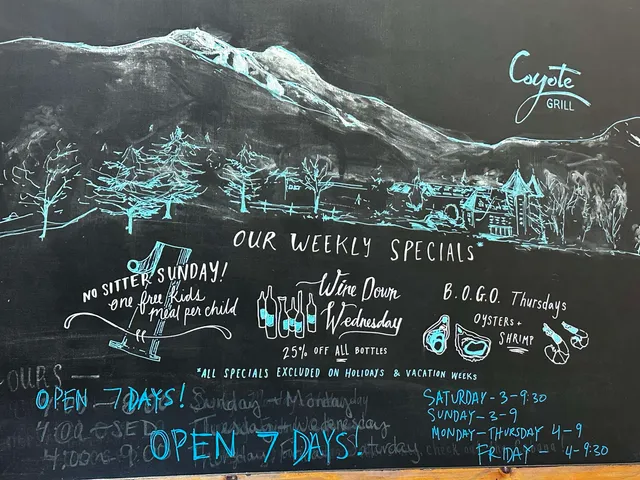 Coyote
GRILL
OUR WEEKLY SPECIALS*
NO SITTER SUNDAY!
one free kids
meal per child
Wine Down
Wednesday
25% OFF ALL BOTTLES
B.O.G.O. Thursdays
OYSTERS +
SHRIMP
*ALL SPECIALS EXCLUDED ON HOLIDAYS & VACATION WEEKS
OURS
OPEN 7 DAYS!
Sunday + Monday
Tuesday + Wednesday
OPEN 7 DAYS!
SATURDAY - 3-9:30
SUNDAY - 3-9
MONDAY-THURSDAY 4-9
FRIDAY - 4-9:30